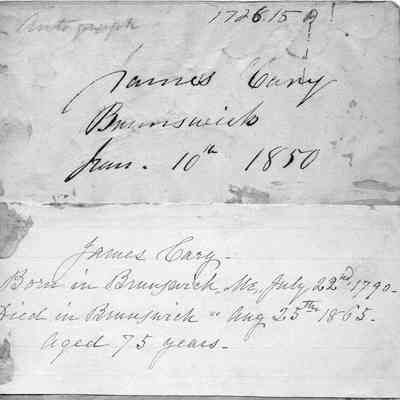 Autograph
1726.15
James Cary
Brunswick
Jan. 10th 1850
James Cary-
Born in Brunswick, Me, July 22nd, 1790-
Died in Brunswick " Aug 25th 1865-
Aged 75 years-